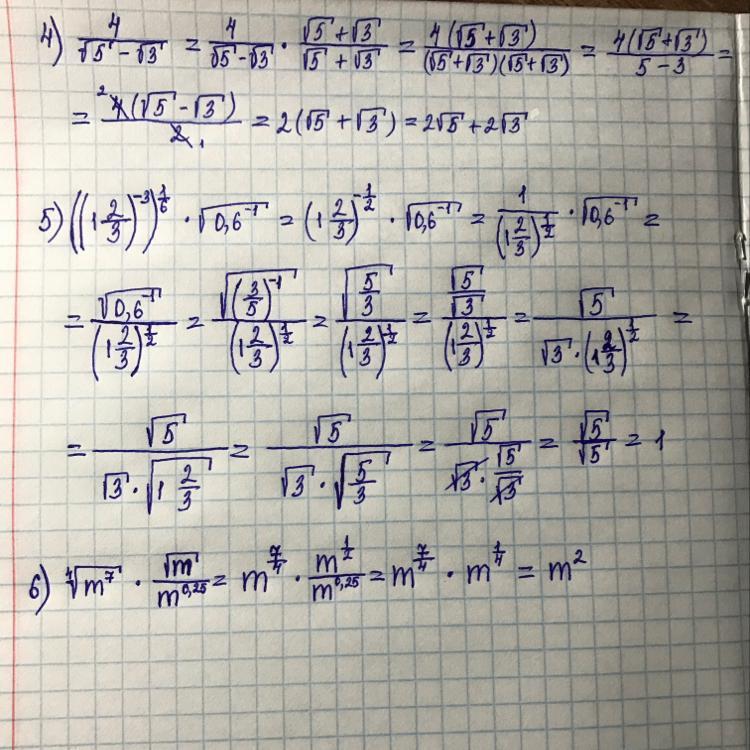 4) 4/(√5 - √3) = 4/(√5 - √3) · (√5 + √3)/(√5 + √3) = 4(√5 + √3)/((√5 + √3)(√5 + √3)) = 4(√5 + √3)/(5 - 3) =
= ²4(√5 - √3)/2₁ = 2(√5 + √3) = 2√5 + 2√3
5) ((1 2/3)^(-3))^(1/6) · √(0,6^(-1)) = (1 2/3)^(-1/2) · √(0,6^(-1)) = 1/(1 2/3)^(1/2) · √(0,6^(-1)) =
= √(0,6^(-1))/(1 2/3)^(1/2) = √((3/5)^(-1))/(1 2/3)^(1/2) = √(5/3)/(1 2/3)^(1/2) = (√5/√3)/(1 2/3)^(1/2) = √5/(√3 · (1 2/3)^(1/2)) =
= √5/(√3 · √(1 2/3)) = √5/(√3 · √(5/3)) = √5/(√3 · √5/√3) = √5/√5 = 1
6) ⁴√(m^7) · √m/m^(0,25) = m^(7/4) · m^(1/2)/m^(0,25) = m^(7/4) · m^(1/4) = m^2